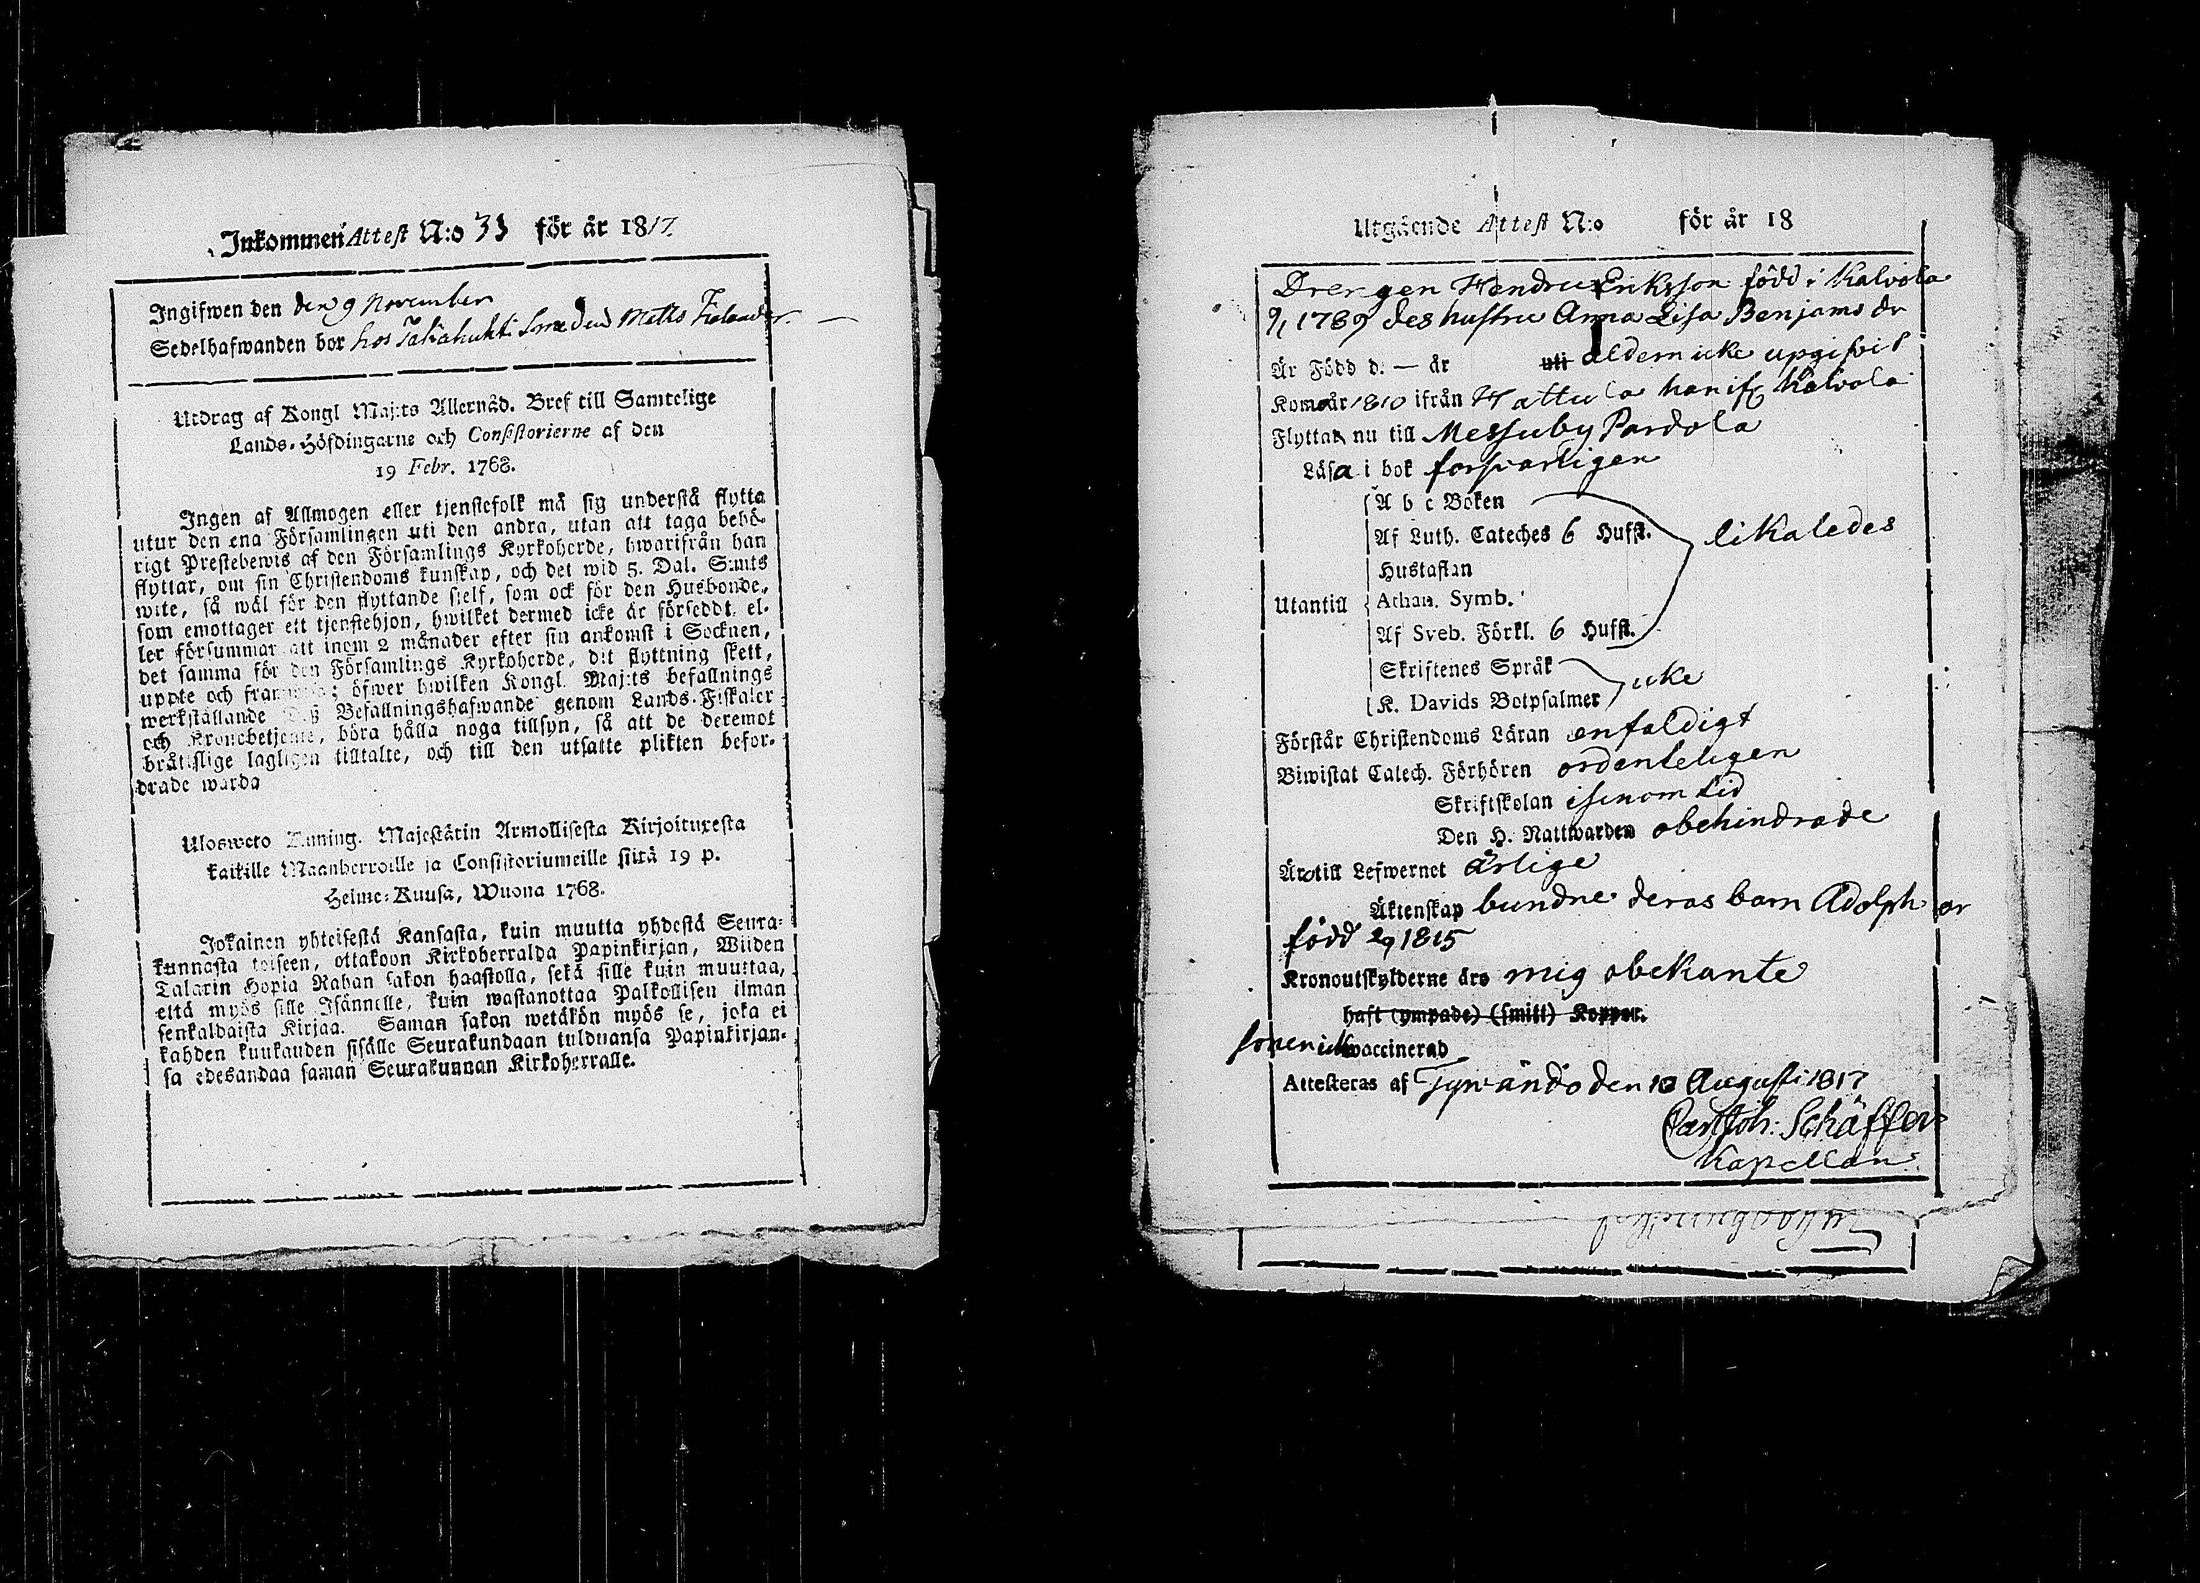 Inkommen Attest N:o 33 för år 1817.
Ingifwen den den 9 November
Sedelhafwanden bor hos Takahuhti Smeden Matts
Utdrag af Kongl Maj:ts Allernåd. Bref till Samtelige
Lands-Höfdingarne och Consistorierne af den
19 Febr. 1768.
Ingen af Allmogen eller tjenstefolk må sig understå flytta
utur den ena Församlingen uti den andra, utan att taga behö-
rigt Prestebewis af den Församlings Kyrkoherde, hwarifrån han
flyttar, om sin Christendoms kunskap, och det wid 5. Dal. S:mts
wite, så wäl för den flyttande sjelf, som ock för den Husbonde,
som emottager ett tjenstehjon, hwilket dermed icke är försedd, el-
ler försummar att inom 2 månader efter sin ankomst i Socknen,
det samma för den Församlings Kyrkoherde, dit flyttning skett,
uppte och framwisa; öfwer hwilken Kongl. Maj:ts befallnings
werkställande Befallningshafwande genom Lands-Fiskaler
och Kronobetjente, böra hålla noga tillsyn, så att de deremot
bråttslige lagligen tilltalte, och till den utsatte plikten befor-
drade warda
Ulosweto Kuning. Majestätin Armollisesta Kirjoituxesta
kaikille Maanherroille ja Consistoriumeille siitä 19 p.
Helme-Kuusa, Wuona 1768.
Jokainen yhteisestä Kansasta, kuin muutta yhdestä Seura-
kunnasta toiseen, ottakoon Kirkoherralda Papinkirjan, Wiiden
Talarin Hopia Rahan sakon haastolla, sekä sille kuin muuttaa,
että myös sille Isännelle, kuin wastanottaa Palkollisen ilman
senkaldaista Kirjaa. Saman sakon wetäkön myös se, joka ei
kahden kuukauden sisälle Seurakundaan tulduansa Papinkirjan-
sa edesandaa saman Seurakunnan Kirkoherralle.
Utgående Attest N:o för år 18
Drengen Hendric Eriksson född i Kalvola
9/1 1789 des hustru Anna Lisa Benjams dr
Är Född d. — år uti åldern icke upgifvit
Kom år 1810 ifrån Hattula han ifr Kalvola
Flyttar nu till Messuby Pardola
Läsa i bok forsvarligen
A b c Boken
Af Luth. Cateches 6 Hufst. likaledes
Hustaflan
Utantill Athan. Symb.
Af Sveb. Förkl. 6 Hufst.
Skriftenes Språk
K. Davids Botpsalmer icke
Förstår Christendoms Läran enfaldigt
Biwistat Catech. Förhören ordenteligen
Skriftskolan i sinom tid
Den H. Nattwarden obehindrade
Äro till Lefwernet ärlige
Äktenskap bundne deras barn Adolph är
född 2/9 1815
Kronoutskylderne äro mig obekante
haft (ympade) (smitt) Koppor.
sonen ick waccinerad
Attesteras af Tyrwändö den 10 Augusti 1817
Carl Joh: Schäffer
Kapellan